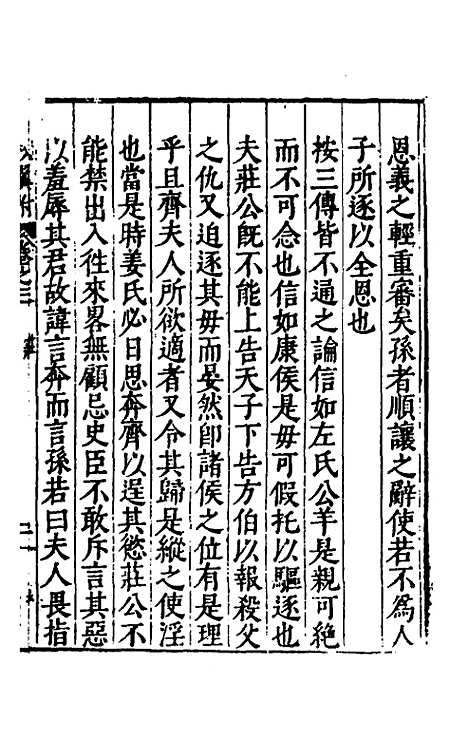 恩義之輕重審矣孫者順讓之辭使若不為人
子所逐以全恩也
按三傳皆不通之論信如左氏公羊是親可絶
而不可念也信如康侯是毋可假托以驅逐也
夫莊公旣不能上告天子下告方伯以報殺父
之仇又追逐其毋而晏然卽諸侯之位有是理
乎且齊夫人所欲適者又令其歸是縱之使淫
也當是時姜氏必日思奔齊以逞其慾莊公不
能禁出入徃來畧無顧忌史臣不敢斥言其惡
以羞辱其君故諱言奔而言孫若曰夫人畏指